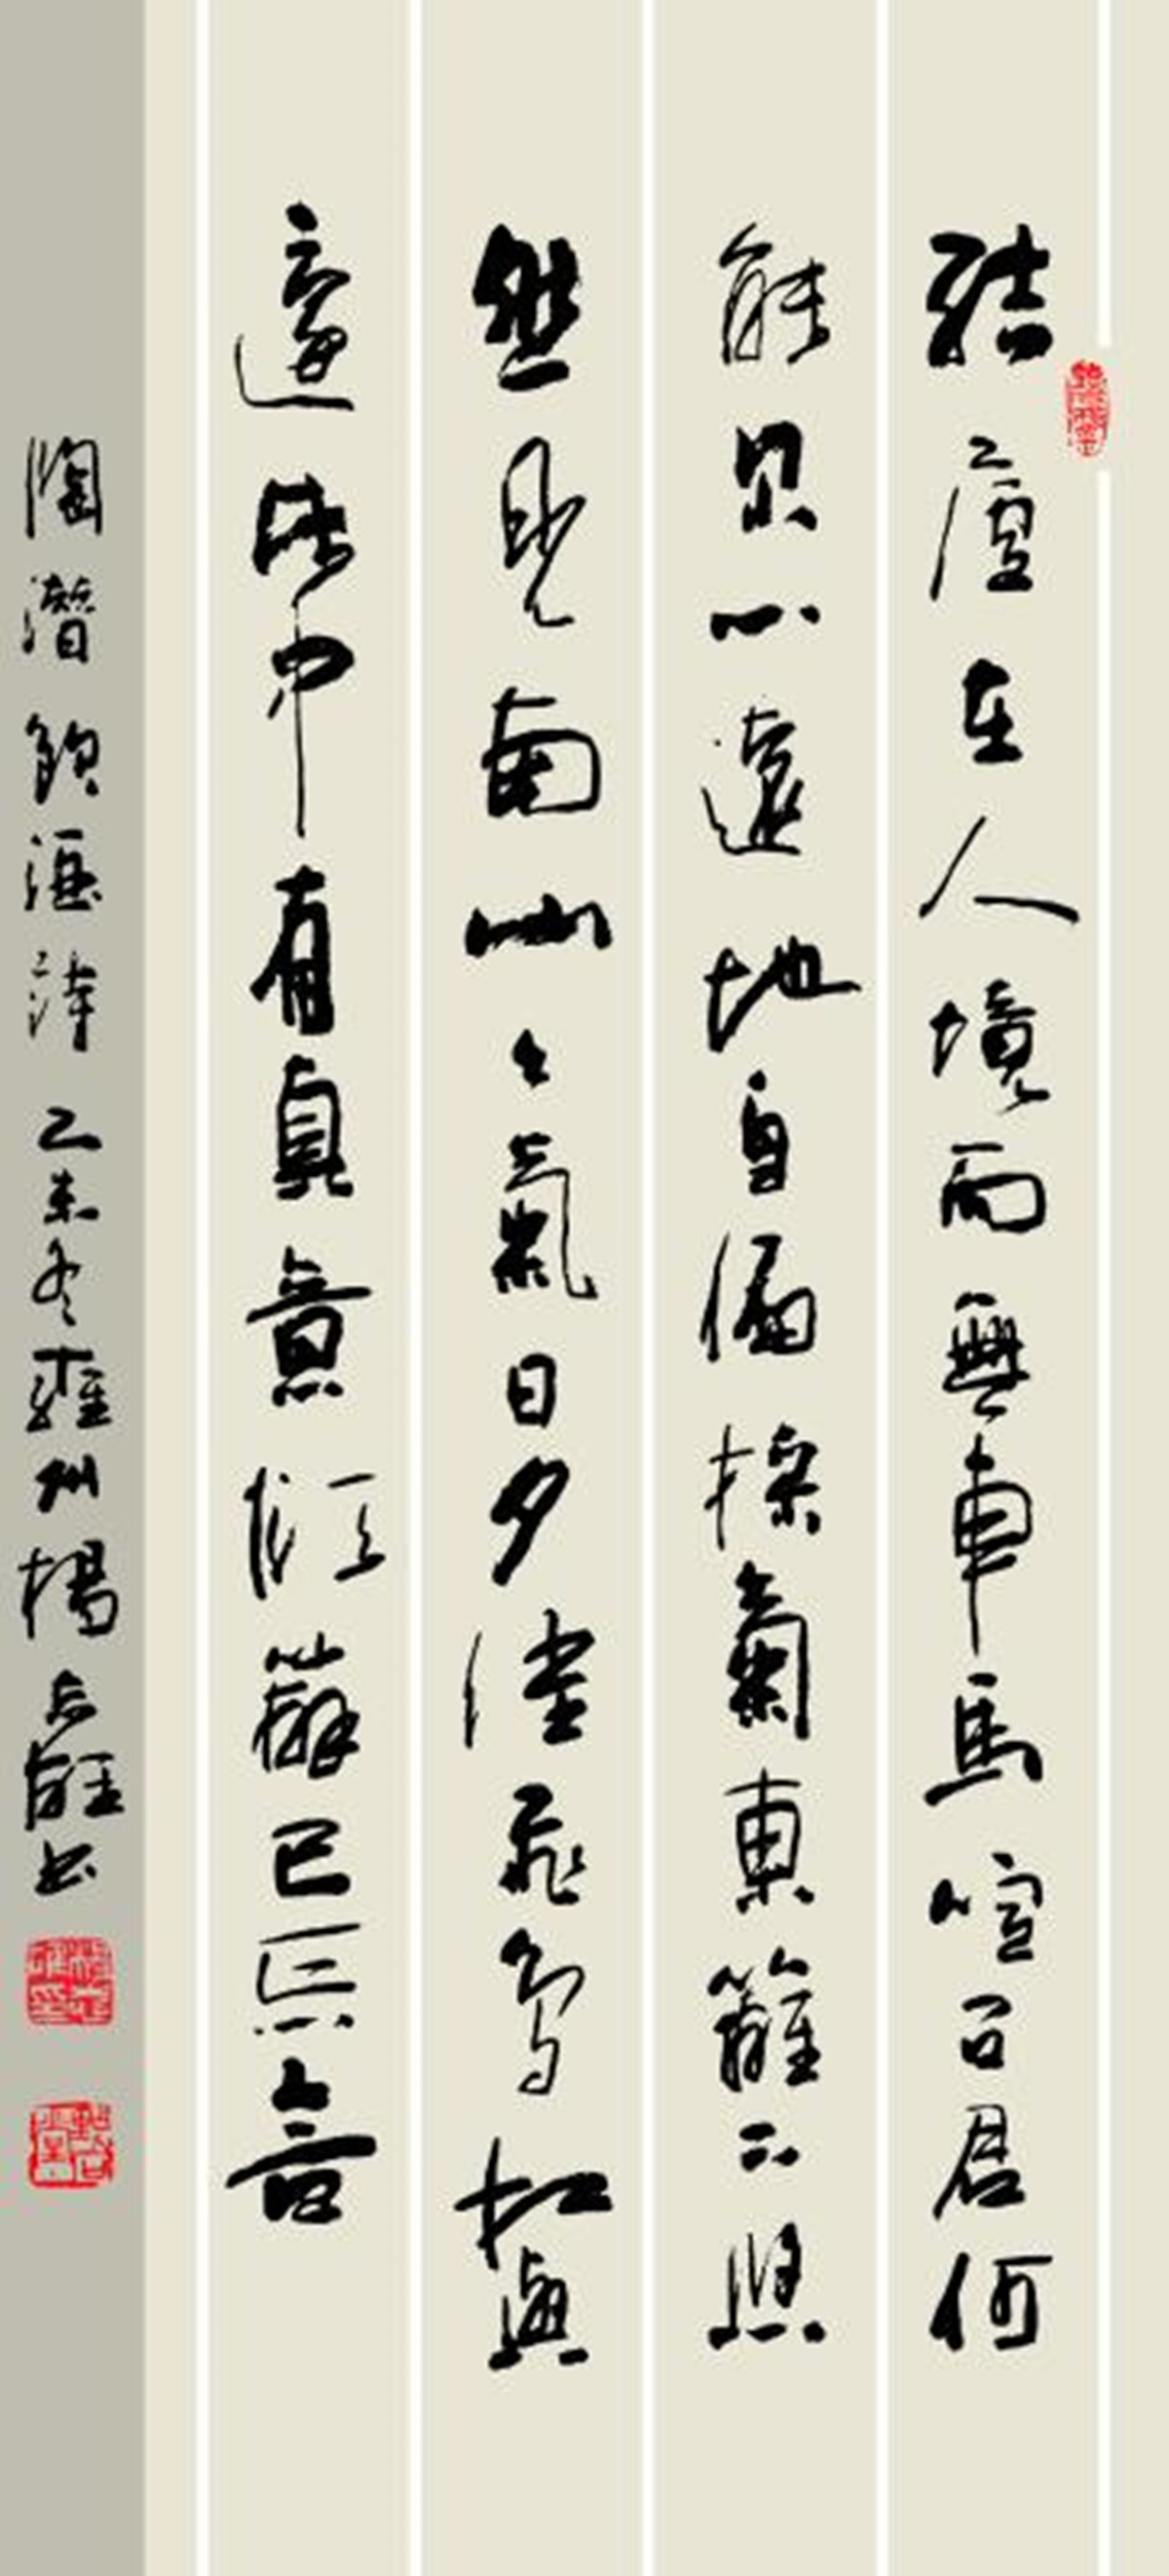 結廬在人境而無車馬喧問君何
能爾心遠地自偏採菊東籬下悠
然見南山々氣日夕佳飛鳥相與
還此中有真意欲辯已忘言
陶潛飲酒詩乙未冬雍州楊書